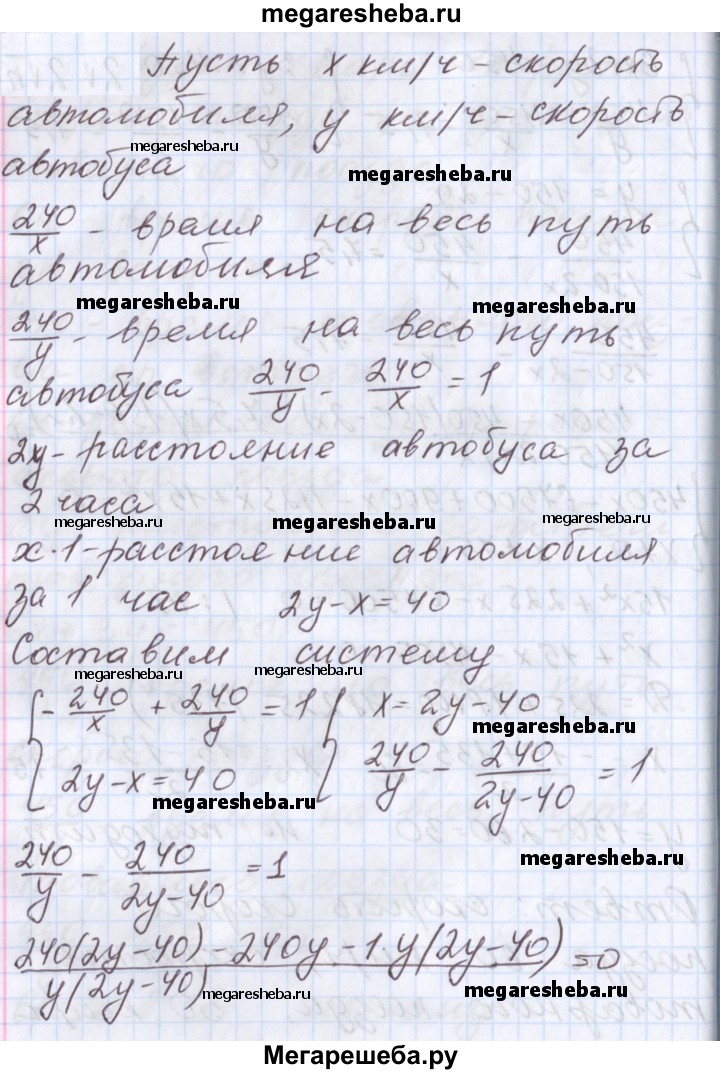 megaresheba.ru
Пусть x км/ч - скорость
автомобиля, y км/ч - скорость
megaresheba.ru
автобуса megaresheba.ru
240/x - время на весь путь
автомобиля
megaresheba.ru megaresheba.ru
240/y - время на весь путь
автобуса 240/y - 240/x = 1
megaresheba.ru
2y - расстояние автобуса за
2 часа
megaresheba.ru megaresheba.ru megaresheba.ru
x·1 - расстояние автомобиля
за 1 час 2y - x = 40
Составим систему
megaresheba.ru megaresheba.ru
{ - 240/x + 240/y = 1 { x = 2y - 40
megaresheba.ru
2y - x = 40 240/y - 240/(2y - 40) = 1
megaresheba.ru
240/y - 240/(2y - 40) = 1
megaresheba.ru
(240(2y - 40) - 240y - 1·y(2y - 40))/(y(2y - 40)) = 0
megaresheba.ru megaresheba.ru
Мегарешеба.ру